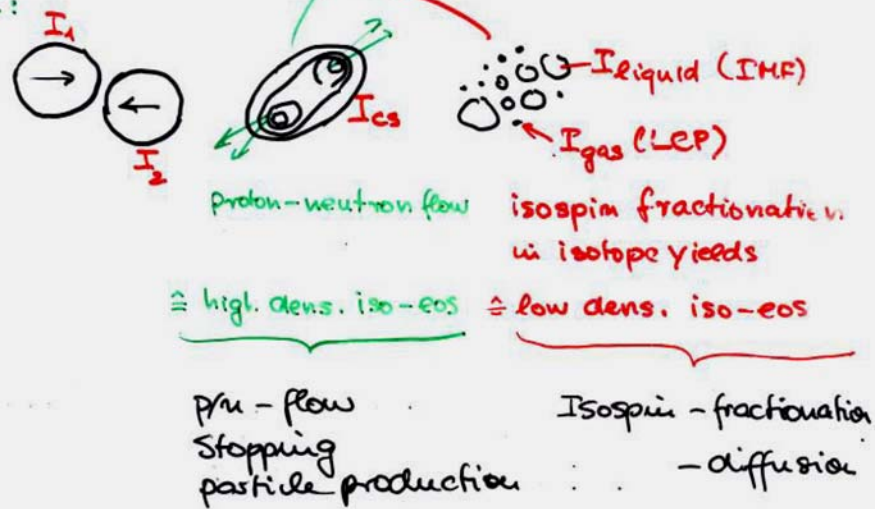 :
I₁
I₂
I_cs
I_liquid (IMF)
I_gas (LCP)
proton-neutron flow
isospin fractionation
in isotope yields
≙ high. dens. iso-eos
≙ low dens. iso-eos
p/n - flow
Stopping
particle production
Isospin - fractionation
- diffusion